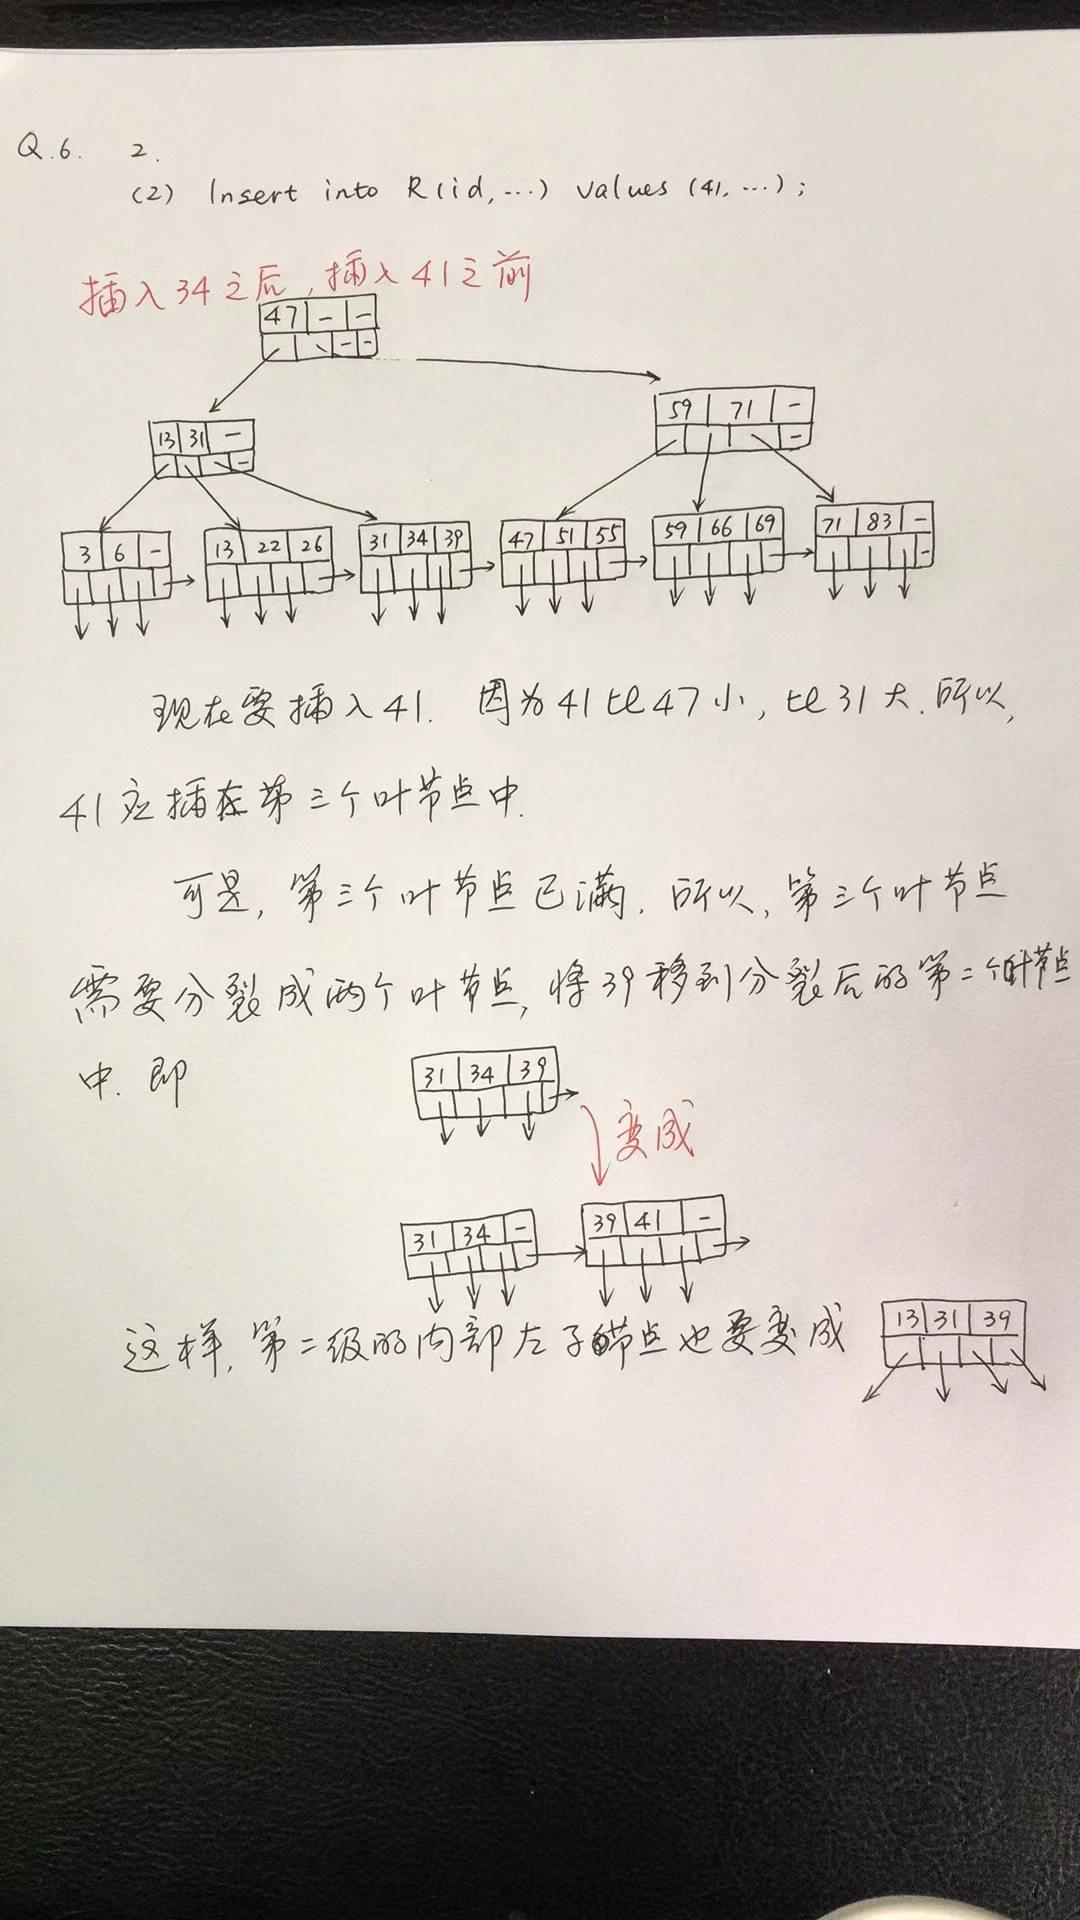 Q.6. 2.
(2) Insert into R(id, ...) values (41, ...);
插入34之后,插入41之前
47 - -
- -
59 71 -
-
13 31 -
-
3 6 - 13 22 26 31 34 39 47 51 55 59 66 69 71 83 -
-
现在要插入41. 因为41比47小,比31大.所以,
41应插在第三个叶节点中.
可是,第三个叶节点已满.所以,第三个叶节点
需要分裂成两个叶节点,将39移到分裂后的第二个叶节点
中.即
31 34 39
变成
31 34 - 39 41 -
这样,第二级的内部左子节点也要变成 13 31 39